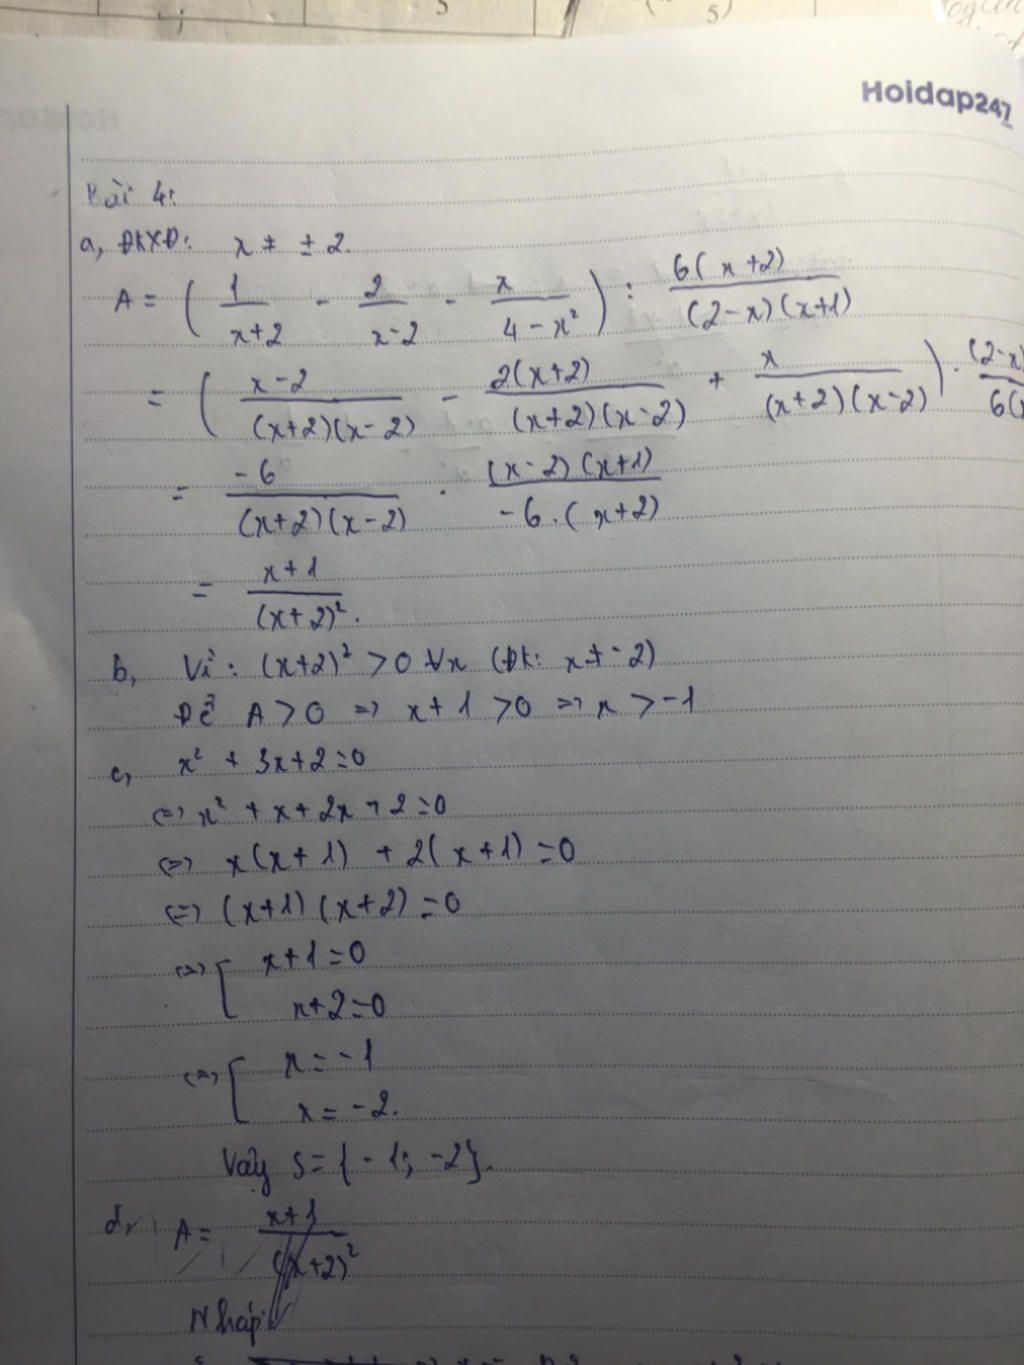 Hoidap247
Bài 4:
a, ĐKXĐ: x ≠ ± 2.
A = ( 1/(x+2) - 2/(x-2) - x/(4-x²) ) : 6(x+2)/((2-x)(x+1))
= ( (x-2)/((x+2)(x-2)) - 2(x+2)/((x+2)(x-2)) + x/((x+2)(x-2)) ) . (2-x)/6(
= -6/((x+2)(x-2)) . (x-2)(x+1)/(-6.(x+2))
= (x+1)/(x+2)².
b, Vì: (x+2)² > 0 ∀x (ĐK: x ≠ -2)
Để A > 0 => x + 1 > 0 => x > -1
c, x² + 3x + 2 = 0
<=> x² + x + 2x + 2 = 0
<=> x(x+1) + 2(x+1) = 0
<=> (x+1)(x+2) = 0
<=> [ x+1 = 0
x+2 = 0
<=> [ x = -1
x = -2.
Vậy S = { -1; -2}.
d, A = (x+1)/(x+2)²
Nháp: